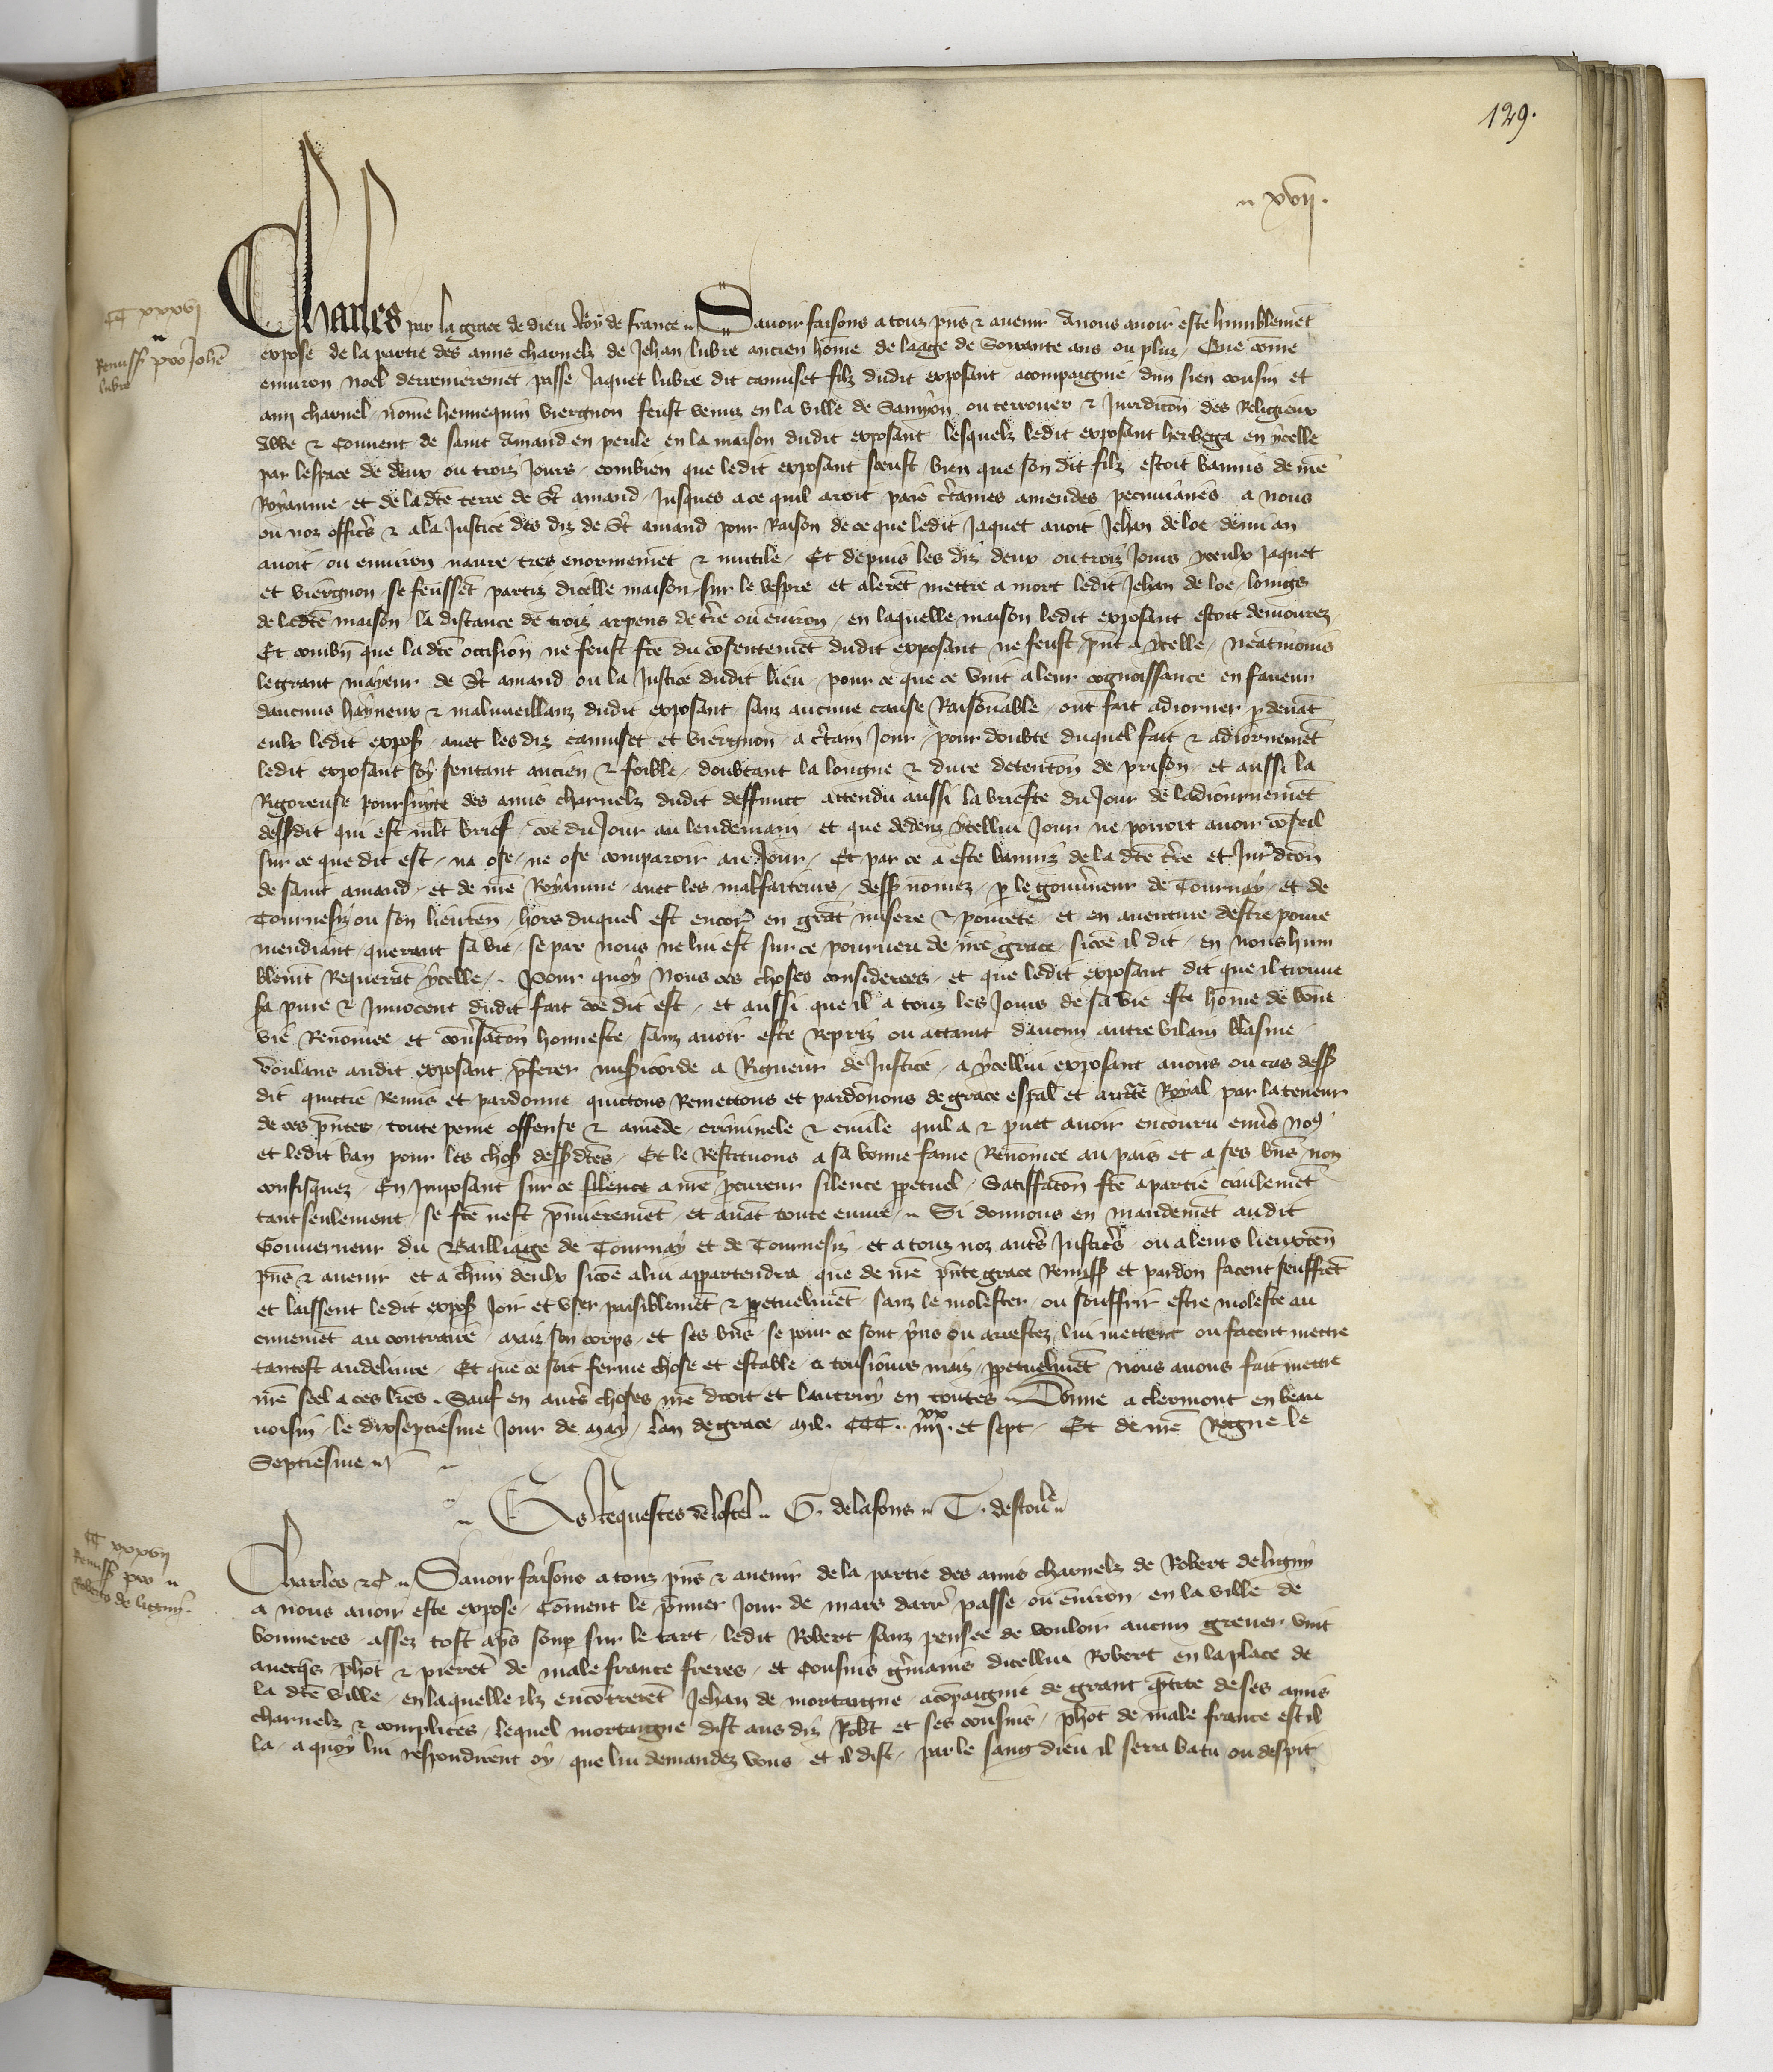 129.
xvij.
CC xxxvj
Remiss pro Johē
lubre
Charles par la grace de dieu Roy de france Sauoir faisons a touz pn̄s & auenir A nous auoir este humblemēt
expose de la partie des amis charnelz de Jehan lubre ancien hōme de laage de Soixante ans ou plus Que cōme
enuiron noel derrenieremēt passe Jaquet lubre dit camuset filz dudit exposant acompaignie dun sien cousin et
amy charnel nōme hennequin Viergnon feust venuz en la ville de ou terrouer & Juridicōn des Religieux
Abbe & Conuent de saint Amand en peule en la maison dudit exposant lesquelz ledit exposant herbega en ycelle
par lespace de deux ou trois Jours combien que ledit exposant sceust bien que son dit filz estoit bannis de nr̄e
Royaume et de la dc̄e terre de St amand Jusques a ce quil aroit paie cr̄taines amendes pecunianes a nous
ou noz offic̄rs & a la Justice des diz de St amand pour Raison de ce que ledit Jaquet auoit Jehan de loe demi an
auoit ou enuiron naure tres enormemēt & mutile Et depuis les diz deux ou trois Jours yceulx Jaquet
et viergnon se feussēt partiz dicelle maison sur le vespre et alerēt mettre a mort ledit Jehan de loe loings
de ladc̄e maison la distance de trois arpens de tr̄re ou enuirō en laquelle maison ledit exposant estoit demourez
Et combn̄ que la dc̄e occision ne feust fc̄e du cōsentemēt dudit exposant ne feust pn̄t a ycelle neātmoins
le grant mayeur de St amand ou la Justice dudit lieu pour ce que ce vint a leur cognoissance en faueur
daucuns hayneux & malueillanz dudit exposant sanz aucune cause Raisonnable ont fait adiorner p deuāt
eulx ledit expos auec les diz camuset et viergnon a cr̄tain Jour pour doubte duquel fait & adiornemēt
ledit exposant soy sentant ancien & foible doubtant la longue & dure detentōn de prison et aussi la
Rigoreuse poursuyte des amis charnelz dudit deffunct attendu aussi la briefte du Jour de ladiournemēt
dessdit qui est mlt brief cōe du Jour au lendemain et que dedenz ycellui Jour ne pouoit auoir cōseil
sur ce que dit est na ose ne ose comparoir au Jour Et par ce a este banniz de la dc̄e tr̄re et Jur̄dicōn
de saint amand et de nr̄e Royaume auec les malfaiteurs dess nōmez p le gouūneur de Tournay et de
Tournesiz ou son lieuten hors duquel est encor̄ en grāt misere & pourete et en auenture destre poure
mendiant querant sa vie se par nous ne lui est sur ce pourueu de nr̄e grace sicōe il dit en nous hum
blemt Requerāt ycelle Pour quoy Nous ces choses considerees et que ledit exposant dit que il trouue
sa pure & Innocent dudit fait cōe dit est et aussi que il a touz les Jours de sa vie este hōme de bōne
vie Renōmee et conu̇sacōn honneste sanz auoir este Repris ou attaint daucun autre vilain blasme
voulans audit exposant p̄ferer mis̄icorde a Rigueur de Justice a ycellui exposant auons ou cas dess
dit quictie Remis et pardonne quictons Remettons et pardōnons de grace esp̄al et auc̄te Royal par la teneur
de ces pn̄tes toute peine offense & amēde criminele & ciuile quil a & puet auoir encouru enūs nos
et ledit ban pour les chos dessdc̄es Et le Restituons a sa bonne fame Renōmee au pais et a ses bn̄s non
confisquez En Imposant sur ce silence a nr̄e procureur silence ppetuel Satiffacōn fc̄e a partie ciuilemēt
tant seulement se fc̄e nest p̄mieremēt et auāt toute euure Si donnons en mandemēt audit
Gouuerneur du Bailliage de Tournay et de Tournesiz et a touz noz aut̄s Justic̄rs ou a leurs lieuxten
pn̄s & auenir et a chūn deulx sicōe a lui appartendra que de nr̄e pn̄te grace Remiss et pardon facent seuffrēt
et laissent ledit expos Joir et vser paisiblemēt & ppetuelmēt sanz le molester ou souffrir estre moleste au
cunemēt au contraire mais son corps et ses bn̄s se pour ce sont pr̄ns ou arrestez lui mettent ou facent mettre
tantost au deliure Et que ce soit ferme chose et estable a tousiours maiz ppetuelmēt nous auons fait mettre
nr̄e seel a ces lr̄es Sauf en aut̄s choses nr̄e droit et lautruy en toutes Donne a clermont en beau
uoisin le dixseptiesme Jour de may lan de grace mil CCC iiij xx et sept Et de nr̄e Regne le
Septiesme
Es Requestes de lostel G. de lafons T. destoule
CC xxxvij
Remiss pro
Roberto de ligny.
Charles &c Sauoir faisons a touz pn̄s & auenir de la partie des amis charnelz de Robert de ligny
a nous auoir este expose Cōment le p̄mier Jour de mars darr̄ passe ou enuirō en la ville de
bouuieres assez tost ap̄s soup sur le tart ledit Robert sanz pensee de vouloir aucun greuer vint
auecq̄s phōt & pieret de male france freres et Cousins gr̄mains dicellui Robert en la place de
la dc̄e ville en laquelle ilz encōtrerēt Jehan de mortaigne acōpaignie de grant q̄ntite de ses amis
charnelz & complices lequel mortaigne dist aus diz Robt et ses cousins phōt de male france est il
la a quoy lui respondirent oy que lui demandez vous et il dist par le sang dieu il sera batu ou despit